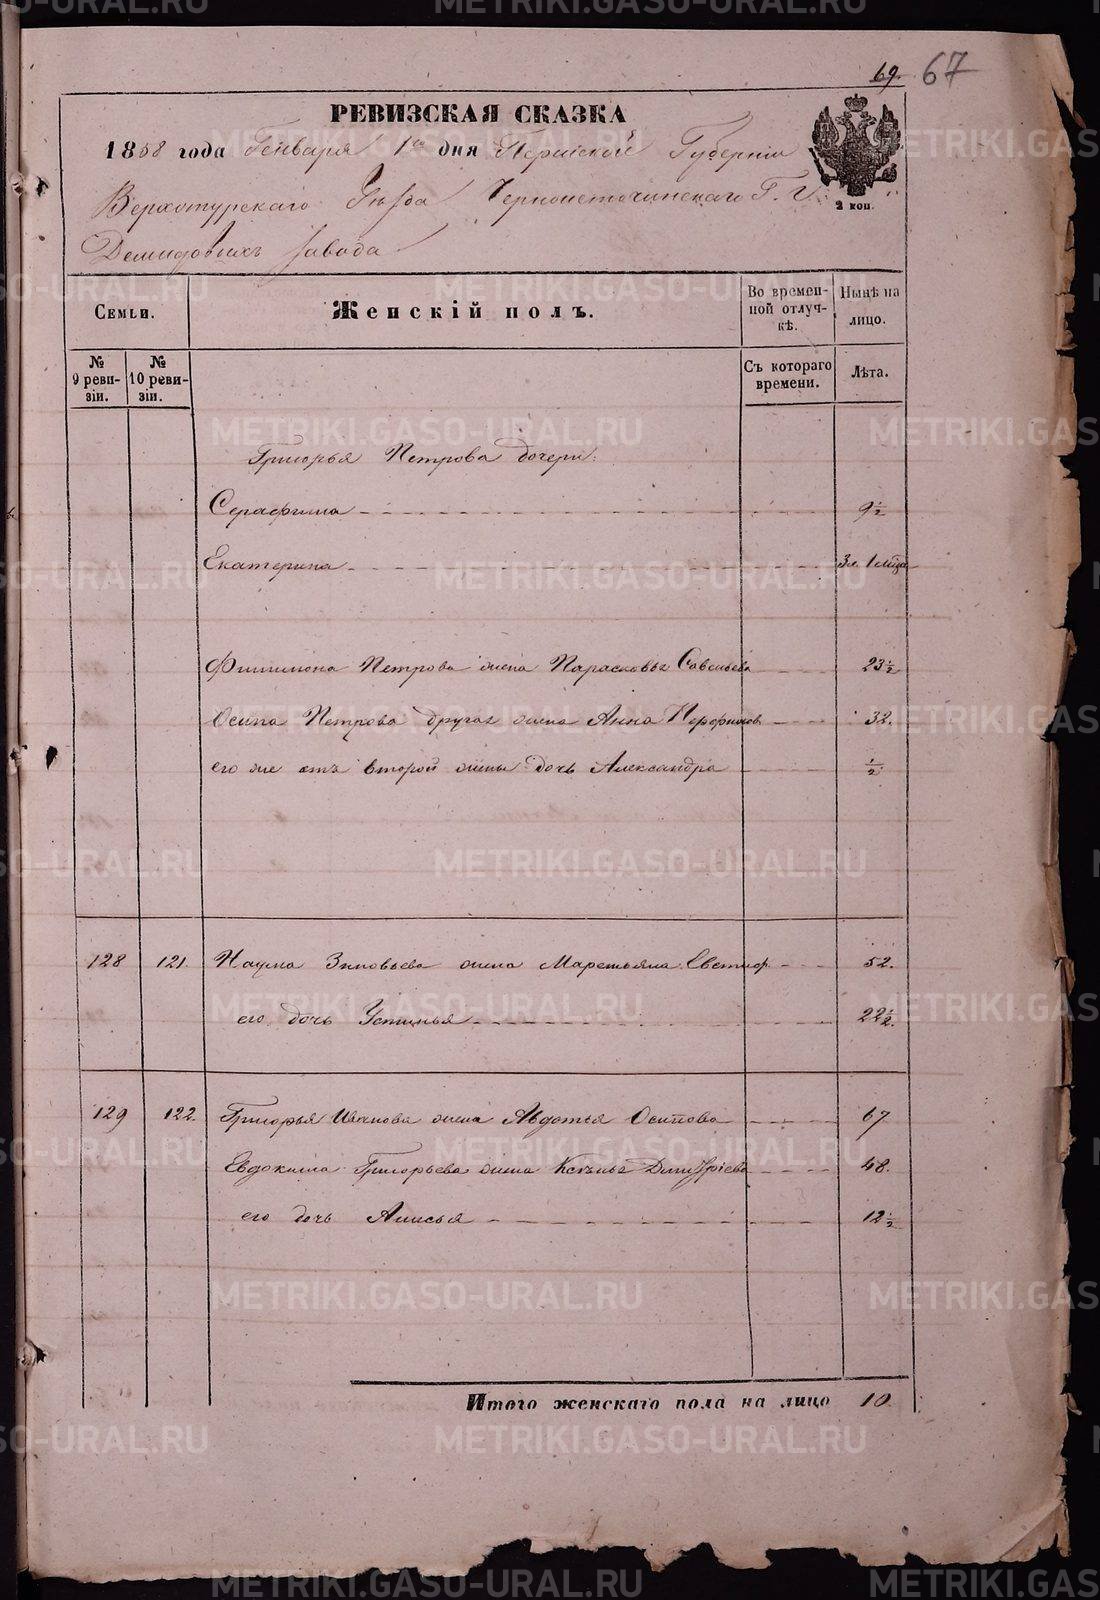 69. 67
РЕВИЗСКАЯ СКАЗКА
1858 года Генваря 1го дня Пермской Губерніи
Верхотурскаго Уѣзда Черноисточинскаго Г. г.
Демидовыхъ завода
2 коп.
Семьи.
Женскій полъ.
Во временной отлучкѣ.
Нынѣ на лицо.
№ 9 ревизіи.
№ 10 ревизіи.
Съ котораго времени.
Лѣта.
Григорья Петрова дочери:
Серафима 9½
Екатерина 3л. 1 мѣца
Филимона Петрова жена Парасковья Савельева 23½
Осипа Петрова другая жена Анна Перфилов. 32.
его же отъ второй жены дочь Александра ½
128 121. Наума Зиновьева жена Маремьяна Евстиф. 52.
его дочь Устинья 22½.
129 122. Григорья Иванова жена Авдотья Осипова 67
Евдокима Григорьева жена Ксенья Дмитріева 48.
его дочь Анисья 12½
Итого женскаго пола на лицо 10
METRIKI.GASO-URAL.RU